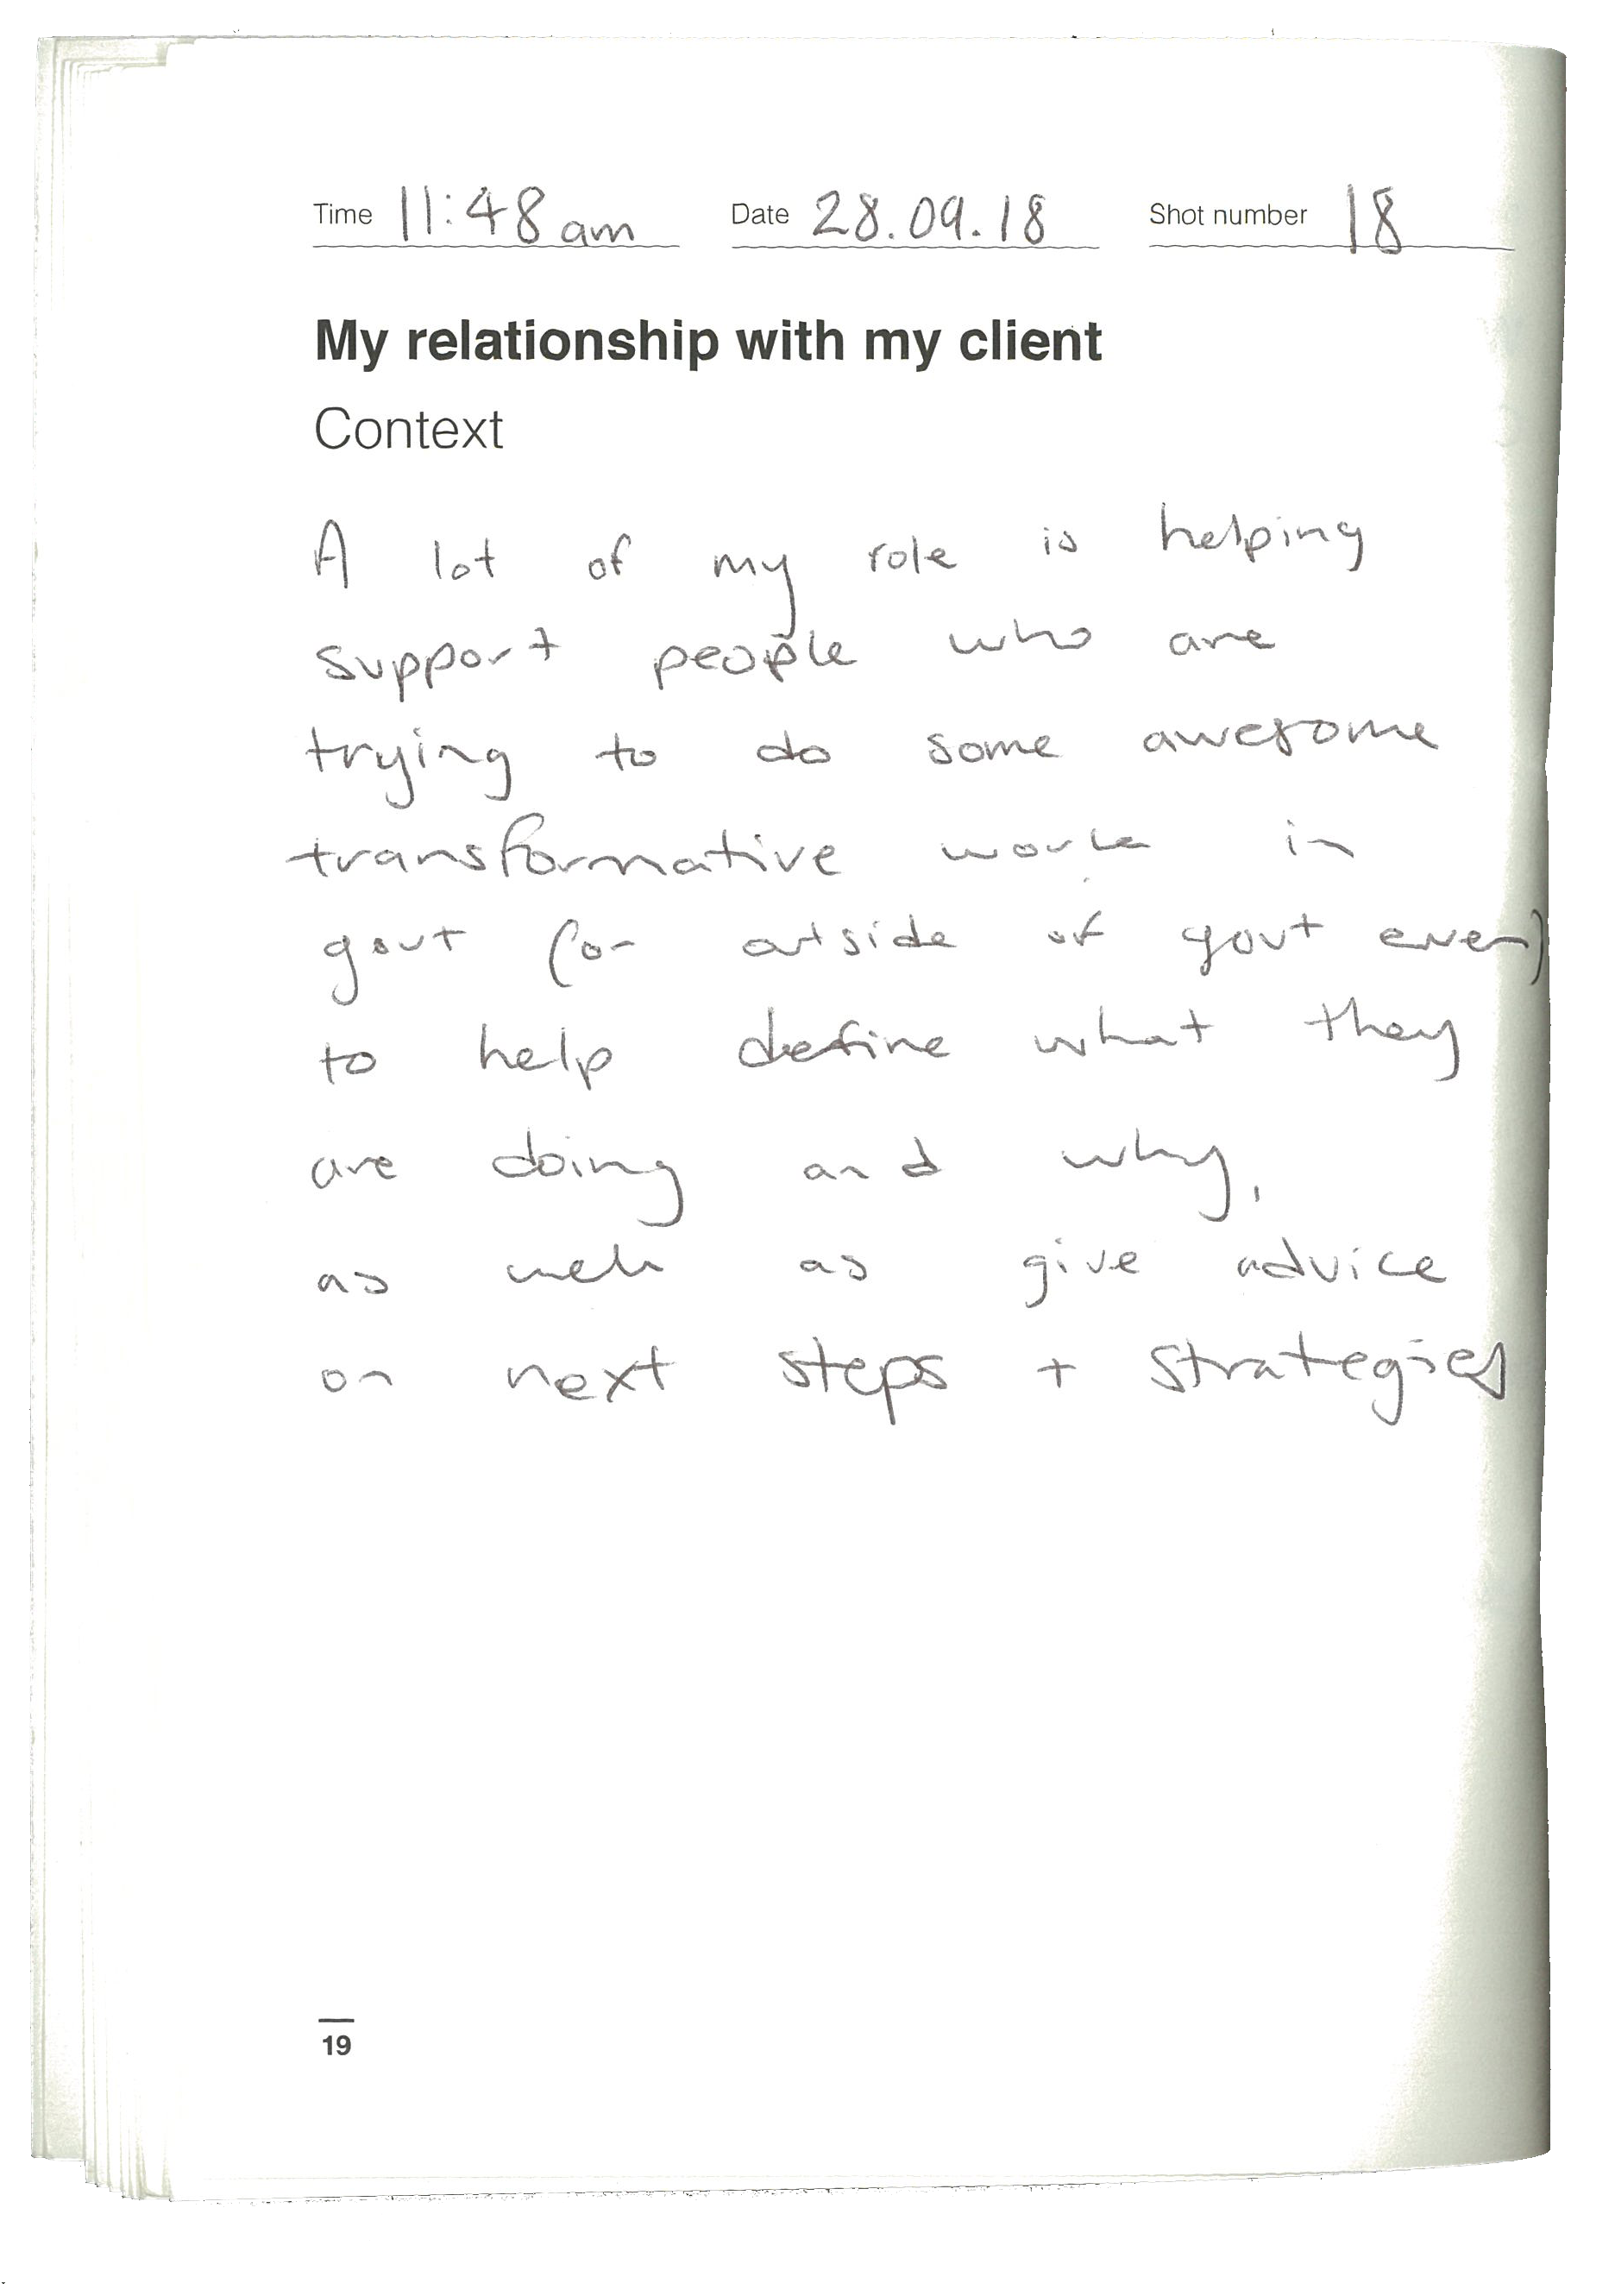 Time 11:48am Date 28.09.18 Shot number 18
My relationship with my client
Context
A lot of my role is helping
support people who are
trying to do some awesome
transformative work in
govt (or outside of govt even)
to help define what they
are doing and why,
as well as give advice
on next steps + strategies
19